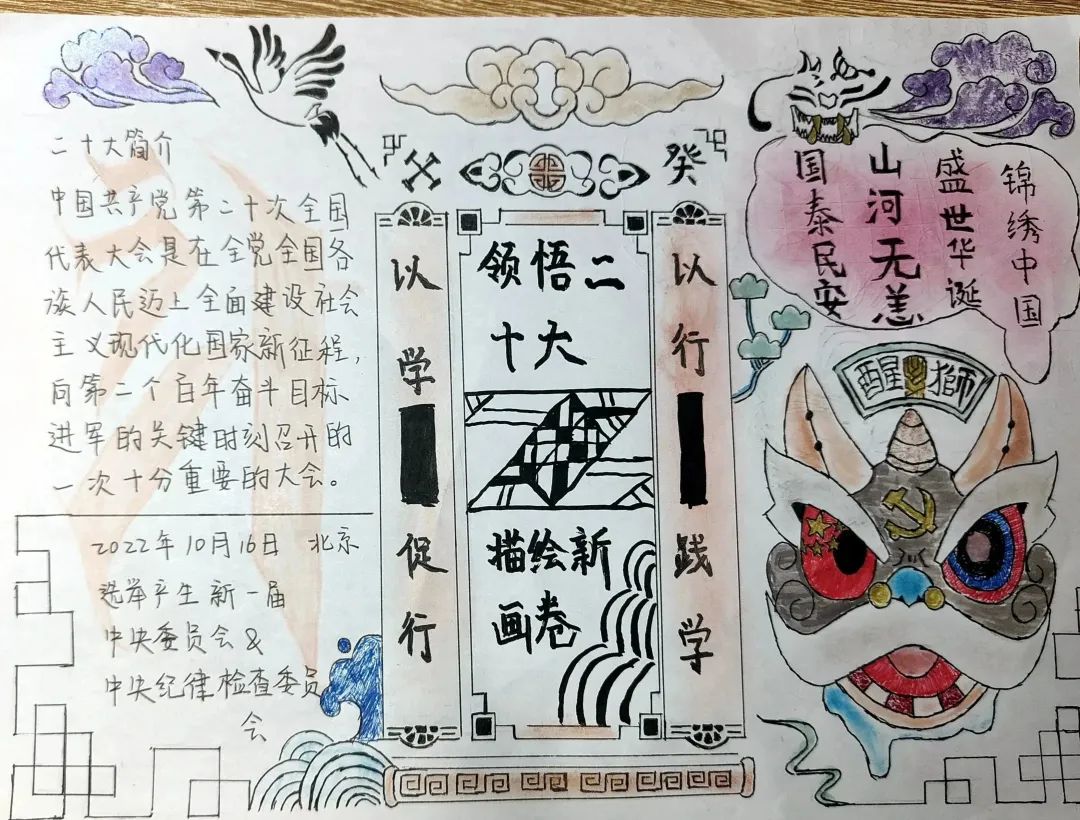 二十大简介
中国共产党第二十次全国
代表大会是在全党全国各
族人民迈上全面建设社会
主义现代化国家新征程,
向第二个百年奋斗目标
进军的关键时刻召开的
一次十分重要的大会。
2022年10月16日 北京
选举产生新一届
中央委员会&
中央纪律检查委员
会
癸
以学促行
领悟二
十大
描绘新
画卷
以行践学
锦绣中国
盛世华诞
山河无恙
国泰民安
醒獅